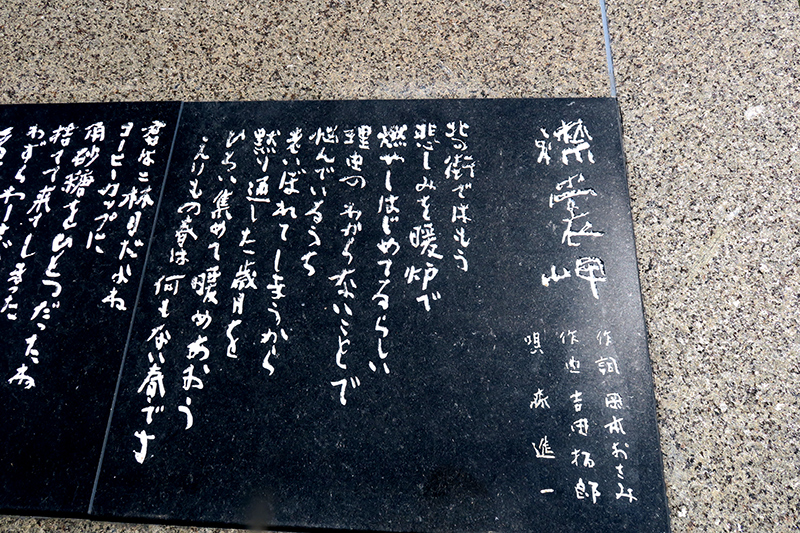 襟裳岬
作詞 岡本おさみ
作曲 吉田拓郎
唄 森進一
北の街ではもう
悲しみを暖炉で
燃やしはじめてるらしい
理由のわからないことで
悩んでいるうち
老いぼれてしまうから
黙り通した歳月を
ひろい集めて暖めあおう
えりもの春は何もない春です
君は二杯目だよね
コーヒーカップに
角砂糖をひとつだったね
捨てて来てしまった
わずらわしさだ